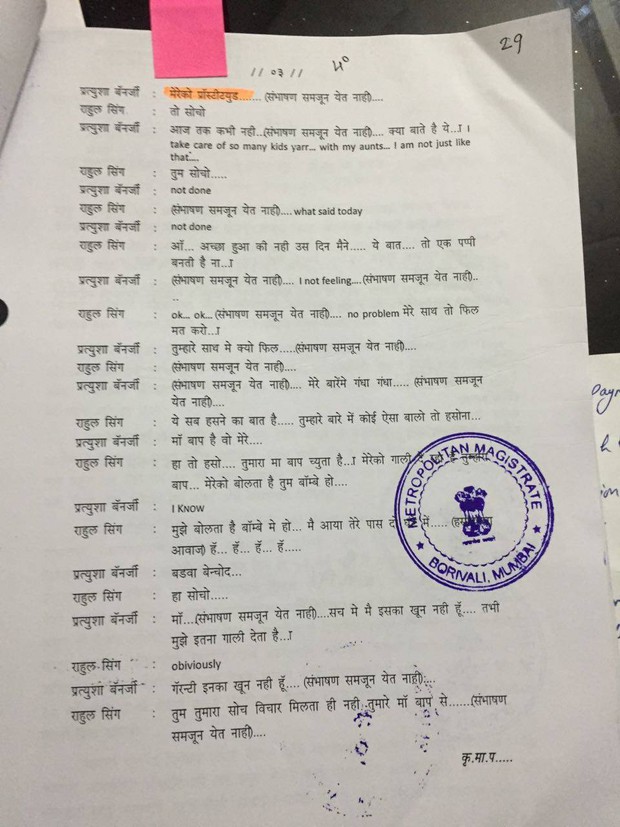 29
// ०३ //
प्रत्युशा बॅनर्जी : मेरेको प्रॉस्टीटयुड........ (संभाषण समजून येत नाही)....
राहुल सिंग : तो सोचो
प्रत्युशा बॅनर्जी : आज तक कभी नही..(संभाषण समजून येत नाही).... क्या बाते है ये...र्‍ I
take care of so many kids yarr... with my aunts... I am not just like
that....
राहुल सिंग : तुम सोचो.....
प्रत्युशा बॅनर्जी : not done
राहुल सिंग : (संभाषण समजून येत नाही).... what said today
प्रत्युशा बॅनर्जी : not done
राहुल सिंग : ऑ... अच्छा हुआ की नही उस दिन मैने..... ये बात.... तो एक पप्पी
बनती है ना...
प्रत्युशा बॅनर्जी : (संभाषण समजून येत नाही).... I not feeling....(संभाषण समजून येत नाही)..
..
राहुल सिंग : ok... ok... (संभाषण समजून येत नाही).... no problem मेरे साथ तो फिल
मत करो...
प्रत्युशा बॅनर्जी : तुम्हारे साथ मे क्यो फिल.....(संभाषण समजून येत नाही)....
राहुल सिंग : (संभाषण समजून येत नाही)....
प्रत्युशा बॅनर्जी : (संभाषण समजून येत नाही).... मेरे बारेंमे गंधा गंधा..... (संभाषण समजून
येत नाही)....
राहुल सिंग : ये सब हसने का बात है..... तुम्हारे बारे में कोई ऐसा बालो तो हसोना...
प्रत्युशा बॅनर्जी : मॉ बाप है वो मेरे....
राहुल सिंग : हा तो हसो.... तुमारा मा बाप च्युता है... मेरेको गाली
बाप... मेरेको बोलता है तुम बॉम्बे हो....
प्रत्युशा बॅनर्जी : I Know
राहुल सिंग : मुझे बोलता है बॉम्बे मे हो... मै आया तेरे पास में.....
आवाज) हॅ... हॅ... हॅ... हॅ.....
प्रत्युशा बॅनर्जी : बडवा बेन्चोद...
राहुल सिंग : हा सोचो.....
प्रत्युशा बॅनर्जी : मॉ...(संभाषण समजून येत नाही)....सच मे मै इसका खून नही हूँ.... तभी
मुझे इतना गाली देता है...
राहुल सिंग : obiviously
प्रत्युशा बॅनर्जी : गॅरन्टी इनका खून नही हूँ.... (संभाषण समजून येत नाही)....
राहुल सिंग : तुम तुमारा सोच विचार मिलता ही नही..तुमारे मॉ बाप से......(संभाषण
समजून येत नाही)....
कृ.मा.प.....
METROPOLITAN MAGISTRATE
BORIVALI, MUMBAI